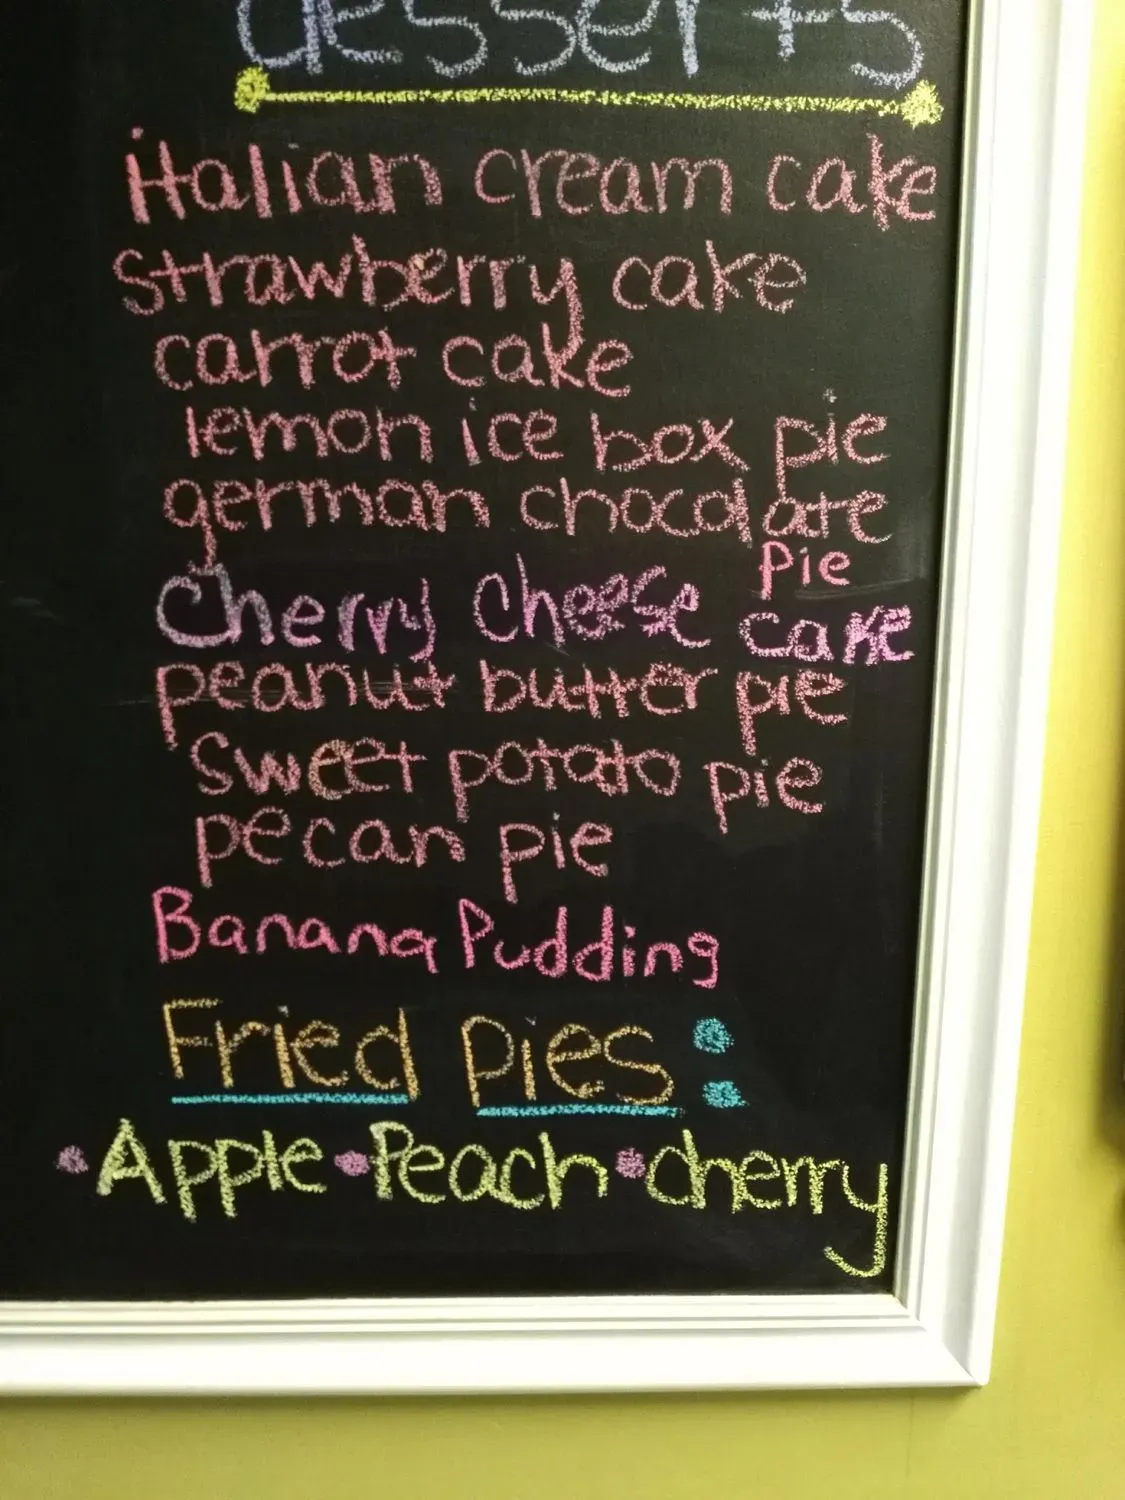 desserts
italian cream cake
strawberry cake
carrot cake
lemon ice box pie
german chocolate
pie
Cherry Cheese cake
peanut butter pie
sweet potato pie
pecan pie
Banana Pudding
Fried pies:
• Apple • Peach • cherry